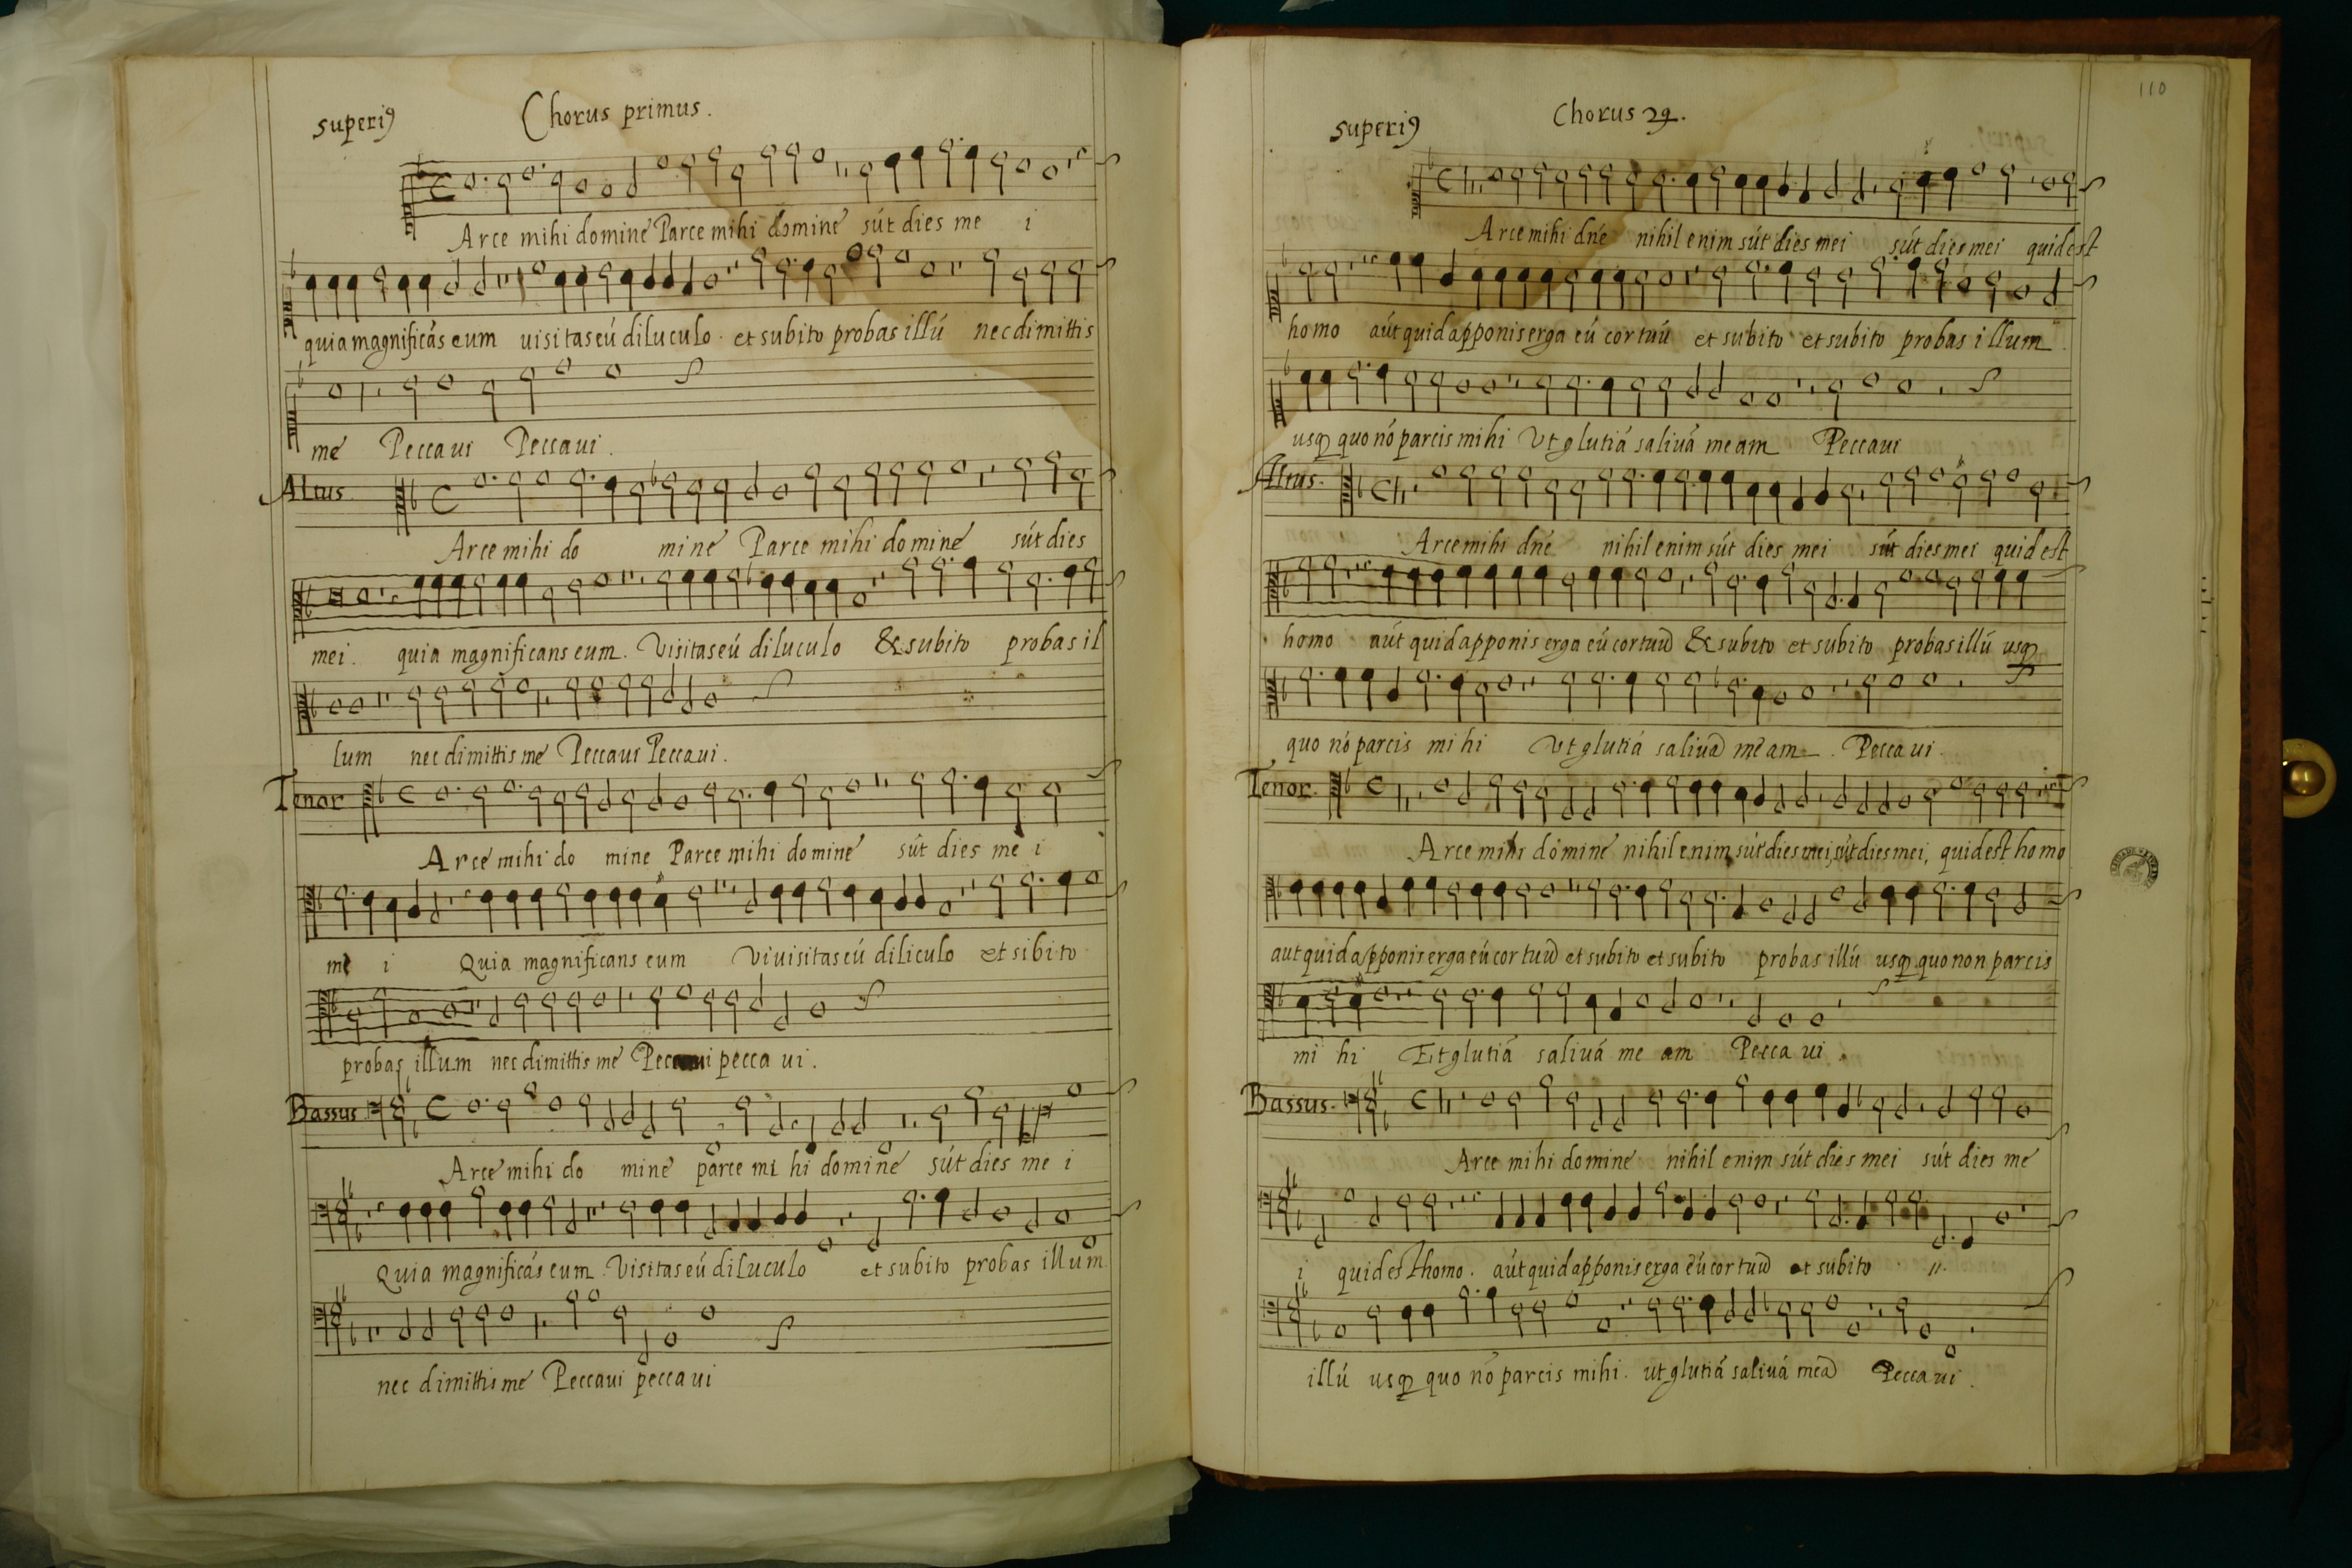 superiꝰ Chorus primus.
Arce mihi domine Parce mihi domine sút dies me i
quia magnificás eum uisitas eú diluculo. et subito probas illú nec dimittis
me Peccaui Peccaui.
Altus.
Arce mihi do mine Parce mihi domine sút dies
mei. quia magnificans eum. Visitas eú diluculo & subito probas il
lum nec dimittis me Peccaui Peccaui.
Tenor
Arce mihi do mine Parce mihi domine sút dies me i
me i Quia magnificans eum Viuisitas eú diliculo et sibito
probas illum nec dimittis me Peccaui pecca ui.
Bassus.
Arce mihi do mine parce mi hi domine sút dies me i
Quia magnificás eum. Visitas eú diluculo et subito probas illum
nec dimittis me Peccaui pecca ui
110
superiꝰ Chorus 2ꝯ.
Arce mihi dńe nihil enim sút dies mei sút dies mei quid est
homo aút quid apponis erga eú cor tuú et subito et subito probas illum.
usqꝫ quo nó parcis mihi Vt glutiá saliuá meam Peccaui
Altus.
Arce mihi dńe nihil enim sút dies mei sút dies mei quid est
homo aút quid apponis erga eú cor tuū & subito et subito probas illú usqꝫ
quo nó parcis mi hi Vt glutiá saliuā me am. Pecca ui.
Tenor.
Arce mihi domine nihil enim sút dies mei, sút dies mei, quid est homo
aut quid apponis erga eú cor tuū et subito et subito probas illú usqꝫ quo non parcis
mi hi Et glutiá saliuá me am Pecca ui.
Bassus.
Arce mihi domine nihil enim sút dies mei sút dies me
i quid est homo. aút quid apponis erga eú cor tuū et subito //.
illú usqꝫ quo nó parcis mihi. ut glutiá saliuá meā Pecca ui.